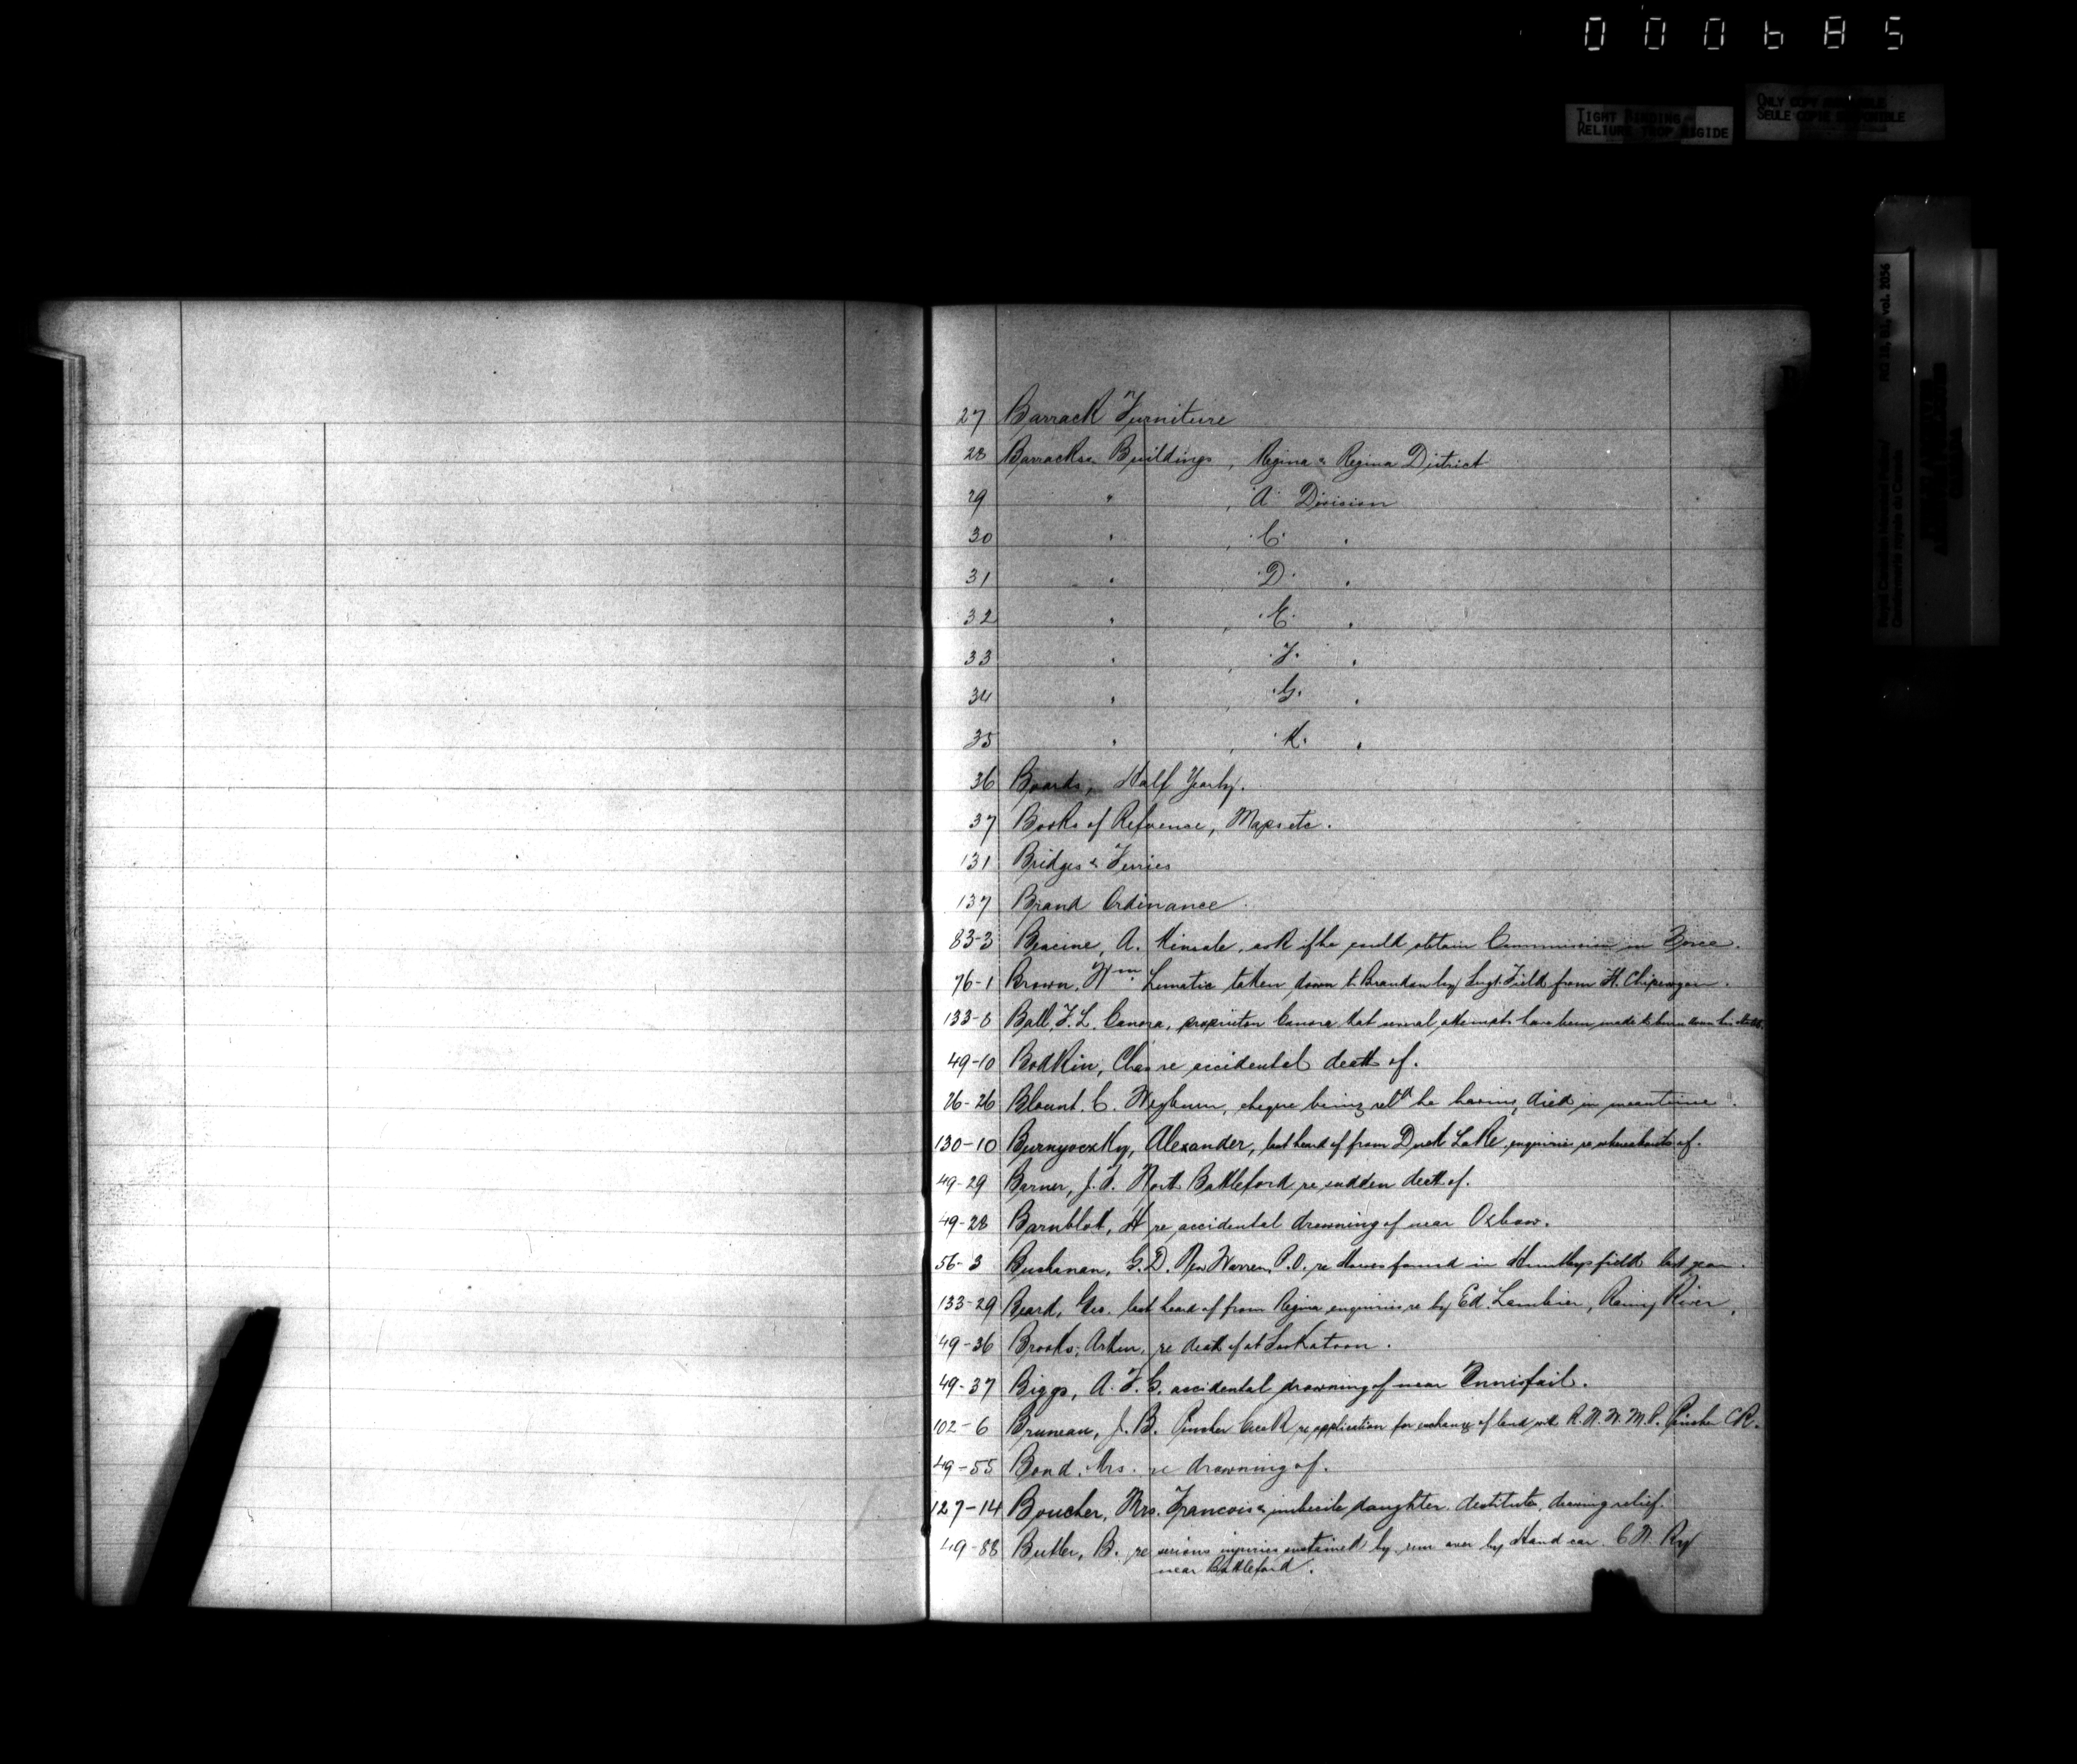 000685
TIGHT BINDING
RELIURE TROP RIGIDE
ONLY COPY AVAILABLE
SEULE COPIE DISPONIBLE
RG 18, vol. 2056
Royal Canadian Mounted Police /
Gendarmerie royale du Canada
27 Barrack Furniture
28 Barracks & Buildings, Regina & Regina District
29 " , "A" Division
30 " , "C" "
31 " , "D" "
32 " , "E" "
33 " , "F" "
34 " , "G" "
35 " , "K" "
36 Boards, Half Yearly.
37 Books of Reference, Maps etc.
131 Bridges & Ferries
137 Brand Ordinance
83-3 A. Kinsale, ask if he could obtain Commission in Force.
76-1 Brown, Wm Lunatic taken down to Brandon by Sergt. Field from Ft. Chipewyan.
133-8 Ball, F. L. Canora, proprietor Canora that several attempts have been made to burn down his
49-10 Bodkin, Chas re accidental death of.
26-26 Blount. C. Weyburn, cheque being retd he having died in meantime.
130-10 Alexander, last heard of from Duck Lake, enquiries re whereabouts of.
49-29 Barner, J. F. North Battleford re sudden death of.
49-28 Barnblot, H re accidental drowning of near Oxbow.
56-3 Buchanan, G. D. New Warren P.O. re Horses found in field last year.
133-29 Beard, Geo. last heard of from Regina enquiries re by Ed. Rainy River.
49-36 Brooks, Arthur, re death of at Saskatoon.
49-37 Biggs, A. F. G. accidental drowning of near Innisfail.
102-6 Bruneau, J. B. Pincher Creek re application for exchange of land with R. N. W. M. P. Pincher CR.
49-55 Bond, Mrs. re drowning of.
127-14 Boucher, Mrs. Francois & imbecile daughter. destitute, drawing relief.
49-88 Butler, B. re serious injuries sustained by run over by Hand car. C N. Ry
near Battleford.